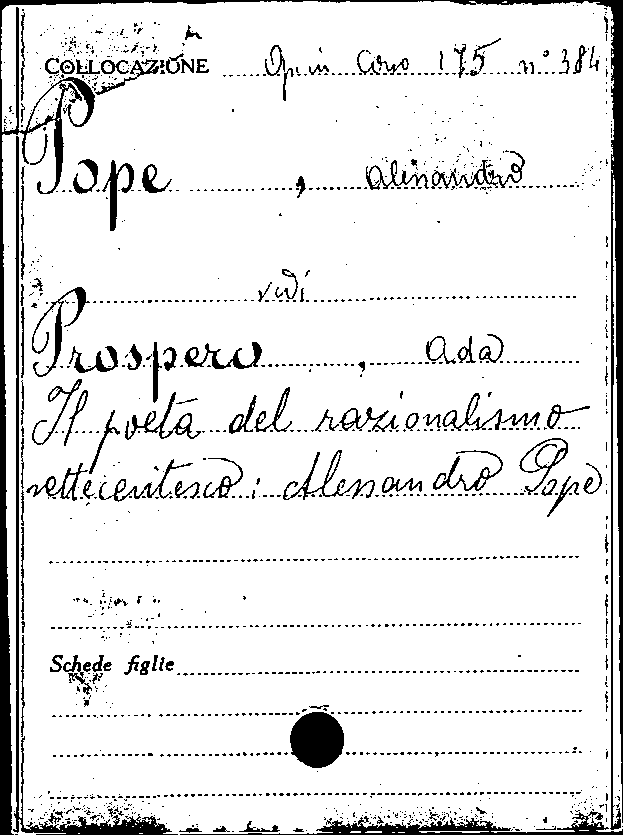 COLLOCAZIONE Op. in Corso 175 n° 384
Pope, Alessandro
vedi
Prospero, Ada
Il poeta del razionalismo
settecentesco: Alessandro Pope
Schede figlie